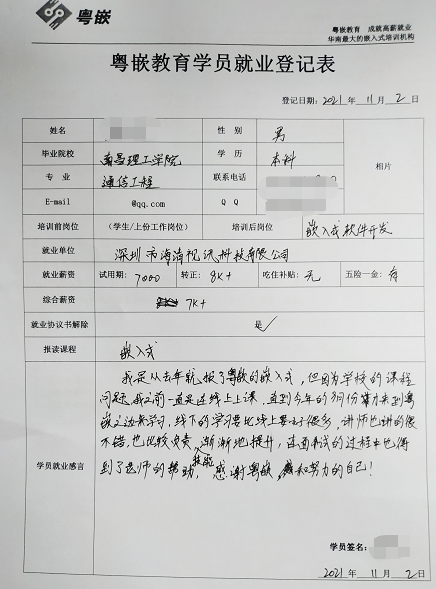 粤嵌
粤嵌教育 成就高薪就业
华南最大的嵌入式培训机构
粤嵌教育学员就业登记表
登记日期：2021 年 11 月 2 日
姓名 性 别 男 相片
毕业院校 南昌理工学院 学 历 本科
专 业 通信工程 联系电话
E-mail @qq.com Q Q
培训前岗位 (学生/上份工作岗位) 培训后岗位 嵌入式软件开发
就业单位 深圳市海清视讯科技有限公司
就业薪资 试用期：7000 转正：8K+ 吃住补贴：无 五险一金：有
综合薪资 7K+
就业协议书解除 是✓
报读课程 嵌入式
我是从去年就报了粤嵌的嵌入式，但因为学校的课程
问题我之前一直是在线上上课，直到今年的 月份 来到粤
嵌 边来学习，线下的学习要比线上要好很多，讲师也讲的很
不错，也比较负责，渐渐地提升，在面试的过程中也得
技能
到了老师的帮助，感谢粤嵌 和努力的自己！
学员就业感言
学员签名：
2021 年 11 月 2 日